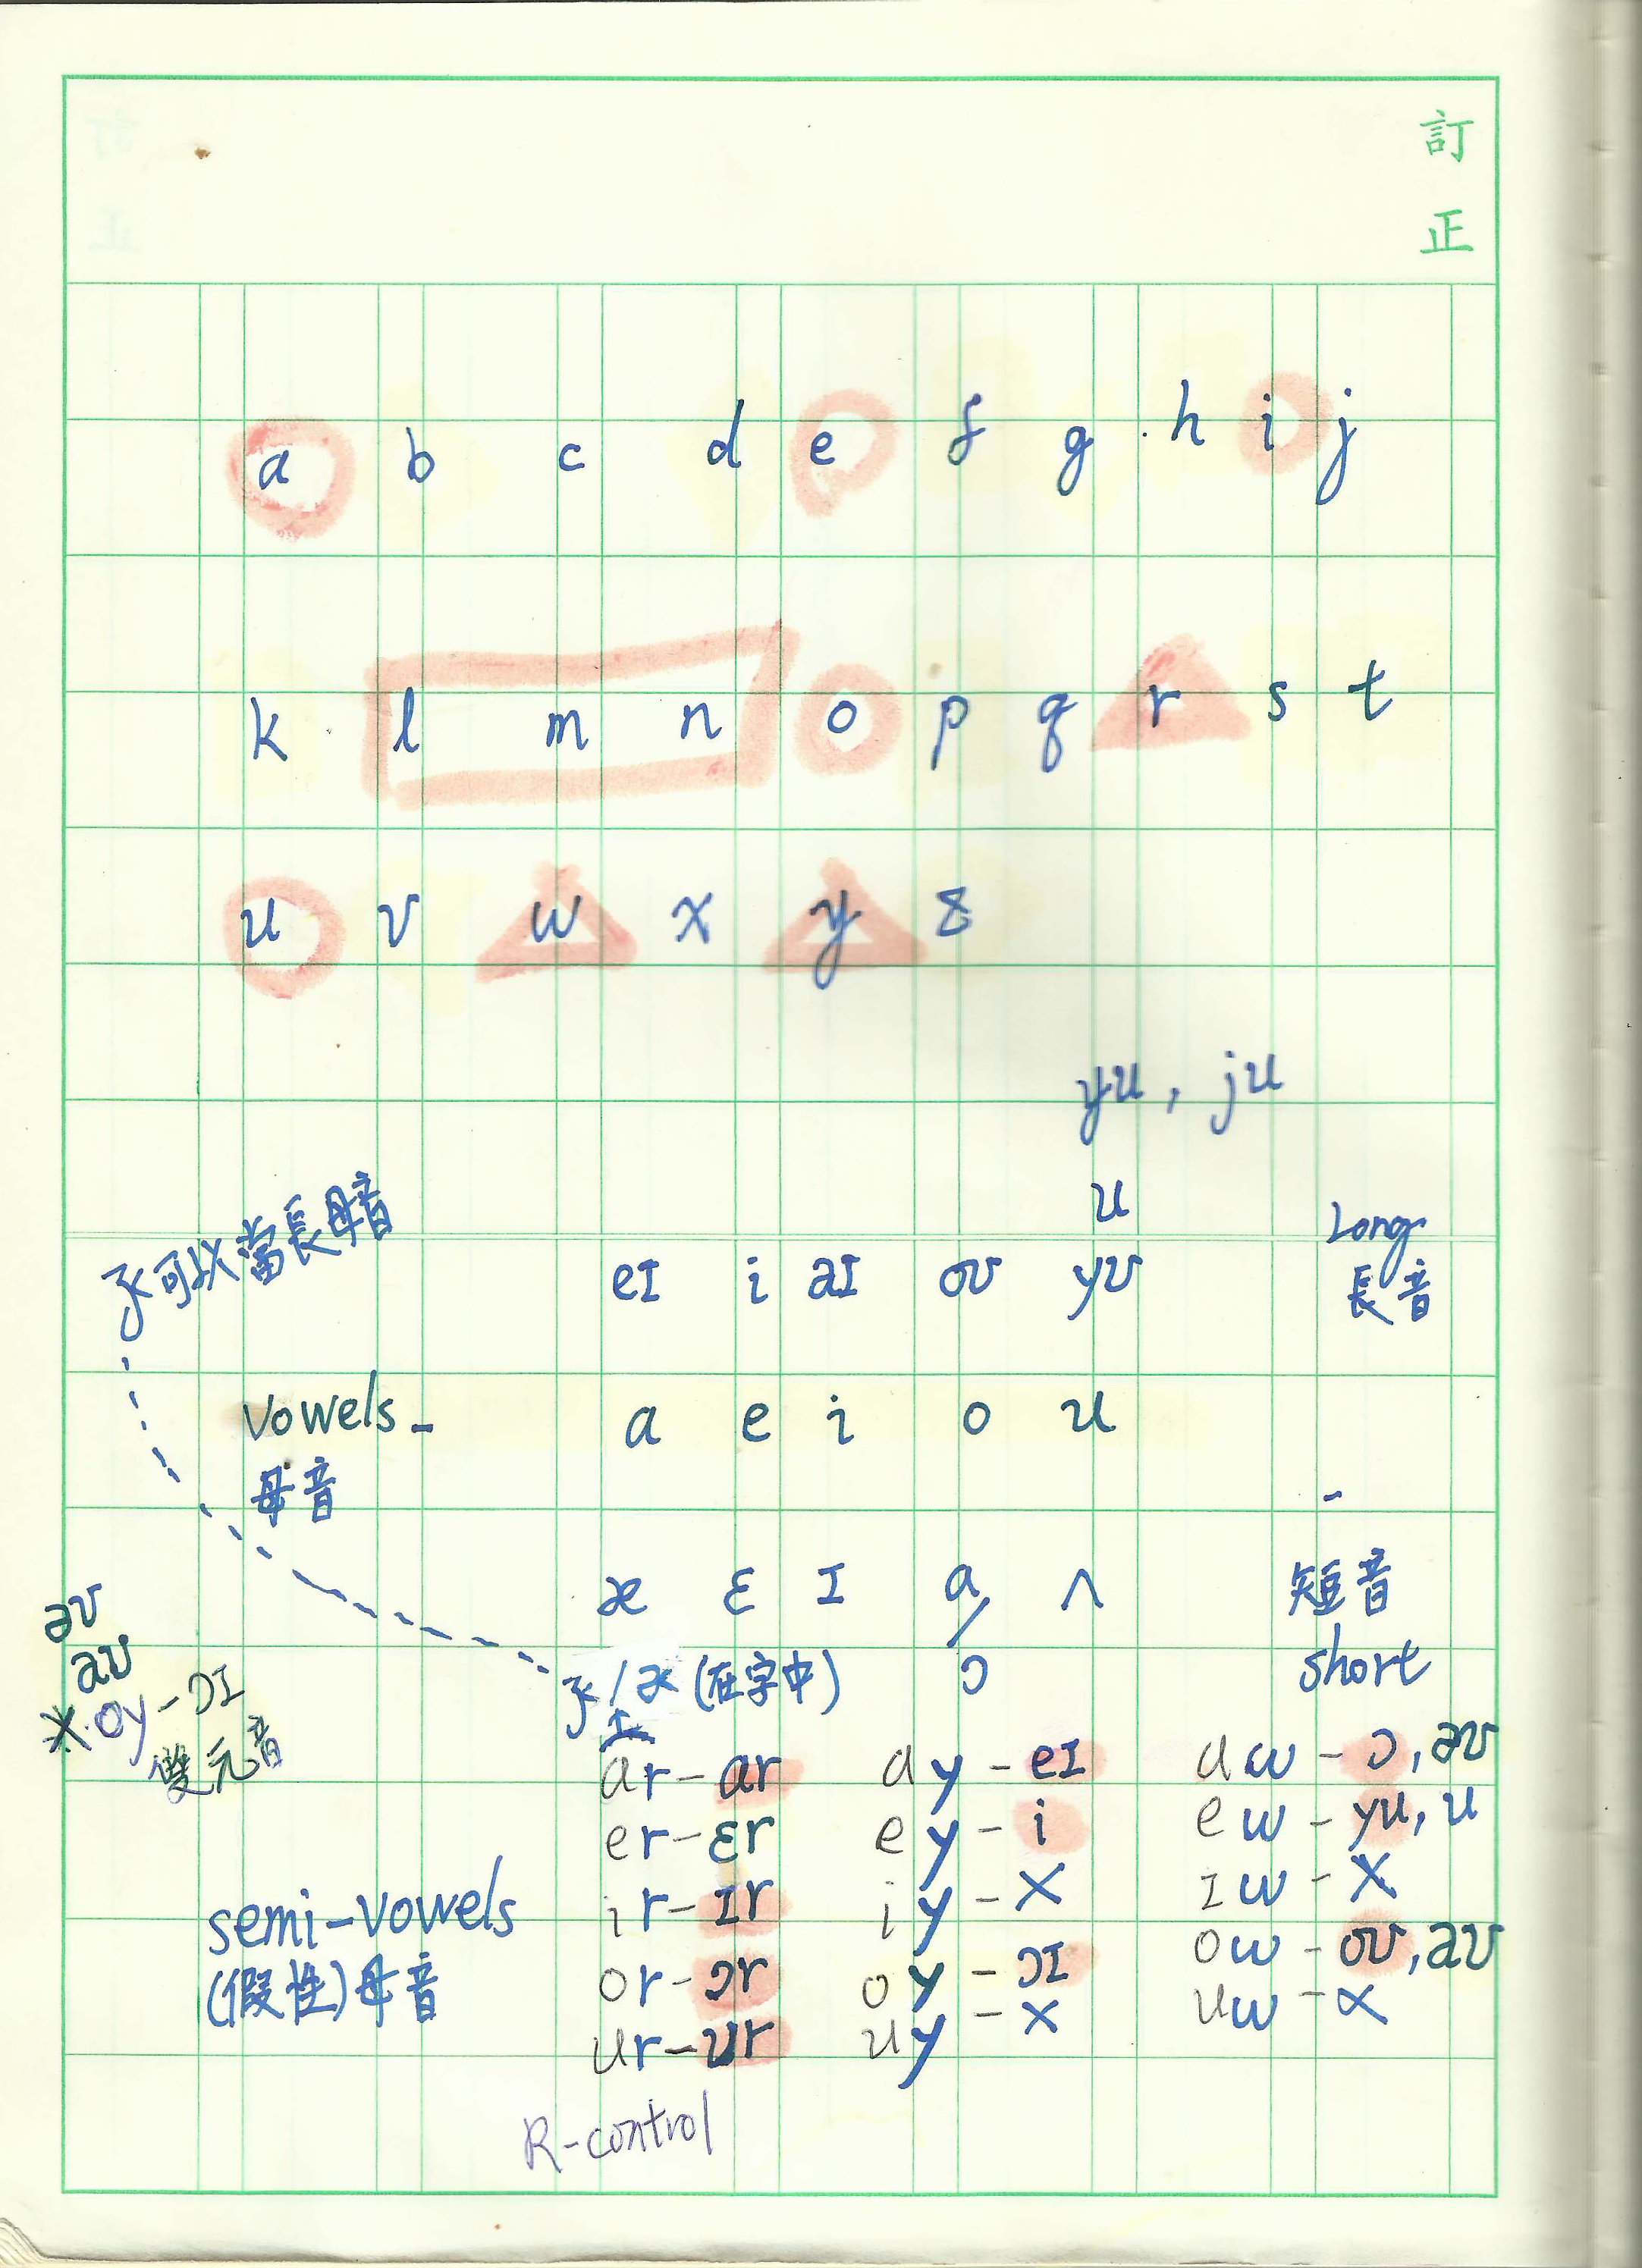 訂正
a b c d e f g h i j
k l m n o p q r s t
u v w x y z
yu, ju
u
eɪ i aɪ oʊ yʊ
Long
長音
不可以當長母音
vowels - a e i o u
母音
æ ɛ ɪ a/ɔ ʌ
短音
short
(在字中)
aʊ
aʊ
※ oy - ɔɪ
雙元音
ar - ar ay - eɪ aw - ɔ, aʊ
er - ɛr ey - i ew - yu, u
ir - ɪr iy - X ɪw - X
or - ɔr oy - ɔɪ ow - oʊ, aʊ
ur - ʊr uy - X uw - X
semi-vowels
(假性)母音
R-control